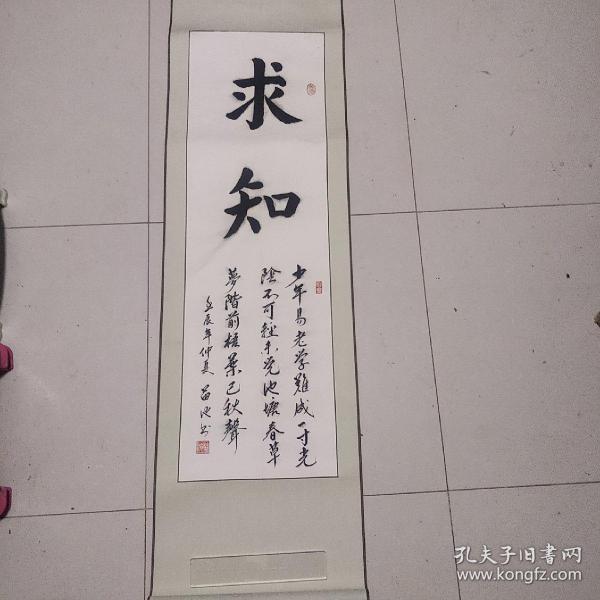 求知
少年易老学難成一寸光
陰不可輕未覚池塘春草
夢階前梧葉已秋聲
壬辰年仲夏
孔夫子旧書网
www.kongfz.com